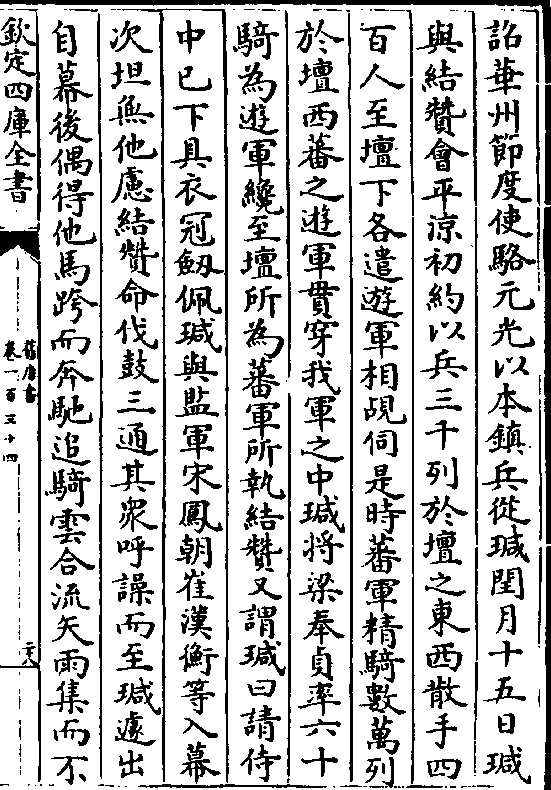 詔華州節度使駱元光以本鎮兵從瑊閏月十五日瑊
與結贊會平涼初約以兵三千列於壇之東西散手四
百人至壇下各遣遊軍相覘伺是時蕃軍精騎數萬列
於壇西蕃之遊軍貫穿我軍之中瑊将梁奉貞率六十
騎為遊軍纔至壇所為蕃軍所執結贊又謂瑊曰請侍
中已下具衣冠劔佩瑊與監軍宋鳳朝崔漢衡等入幕
次坦無他慮結贊命伐鼓三通其衆呼譟而至瑊遽出
自幕後偶得他馬跨而奔馳追騎雲合流矢雨集而不
欽定四庫全書
舊唐書
卷一百三十四
二十八